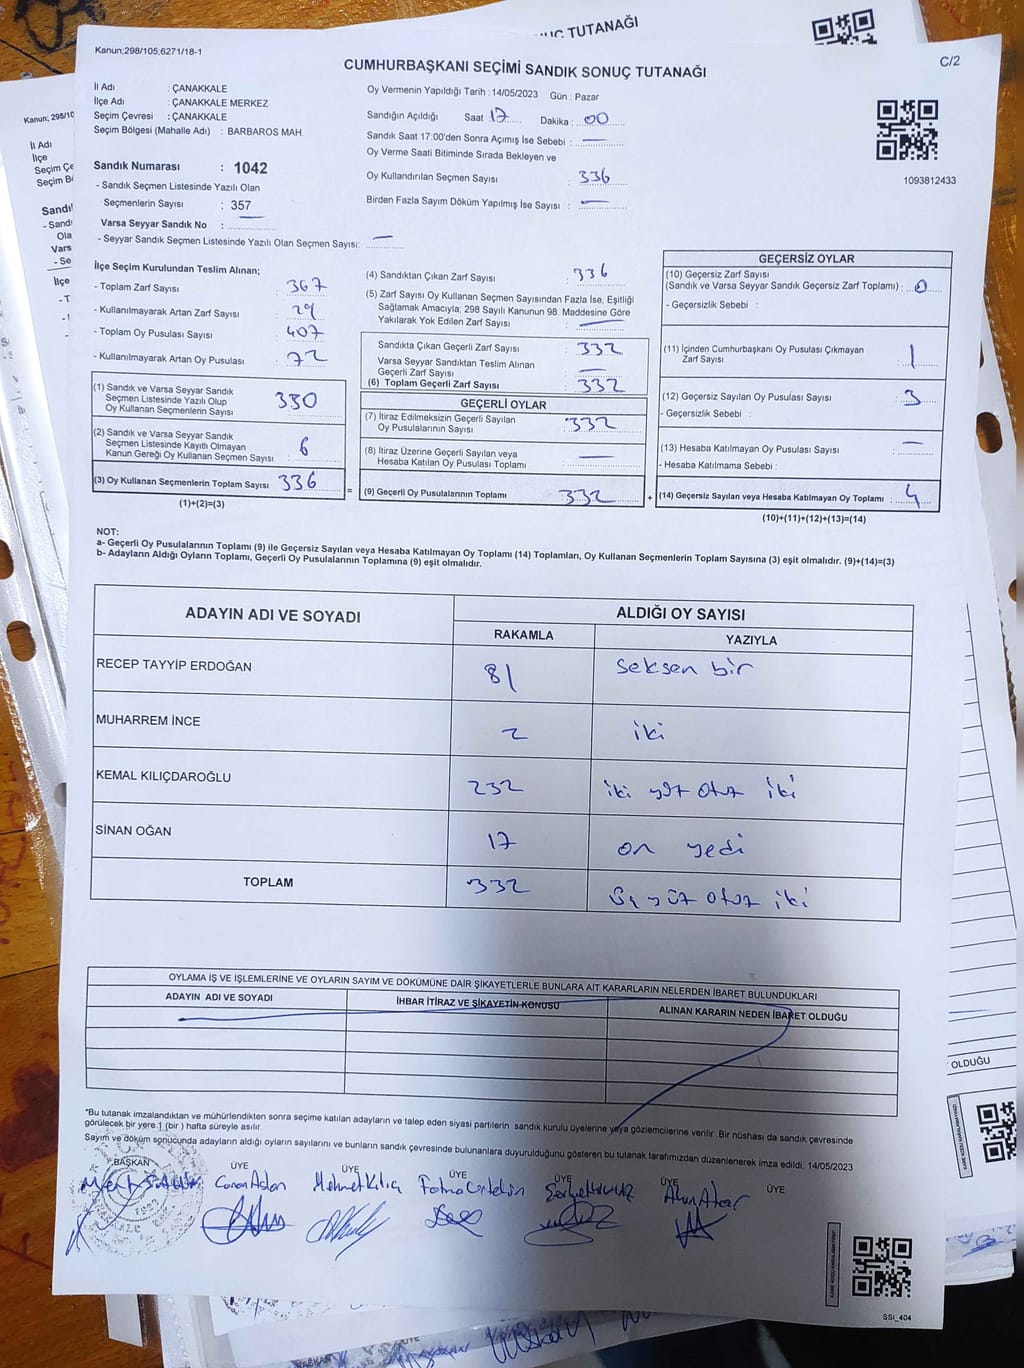 UÇ TUTANAĞI
Kanun;298/105,6271/18-1
C/2
CUMHURBAŞKANI SEÇİMİ SANDIK SONUÇ TUTANAĞI
İl Adı : ÇANAKKALE
İlçe Adı : ÇANAKKALE MERKEZ
Seçim Çevresi : ÇANAKKALE
Seçim Bölgesi (Mahalle Adı) : BARBAROS MAH.
Oy Vermenin Yapıldığı Tarih : 14/05/2023 Gün : Pazar
Sandığın Açıldığı Saat 17 Dakika : 00
Sandık Saat 17:00'den Sonra Açılmış İse Sebebi : —
Oy Verme Saati Bitiminde Sırada Bekleyen ve
Oy Kullandırılan Seçmen Sayısı : 336
Birden Fazla Sayım Döküm Yapılmış İse Sayısı : —
1093812433
Sandık Numarası : 1042
- Sandık Seçmen Listesinde Yazılı Olan
Seçmenlerin Sayısı : 357
Varsa Seyyar Sandık No : —
- Seyyar Sandık Seçmen Listesinde Yazılı Olan Seçmen Sayısı: —
İlçe Seçim Kurulundan Teslim Alınan;
- Toplam Zarf Sayısı : 367
- Kullanılmayarak Artan Zarf Sayısı : 29
- Toplam Oy Pusulası Sayısı : 407
- Kullanılmayarak Artan Oy Pusulası : 72
(1) Sandık ve Varsa Seyyar Sandık
Seçmen Listesinde Yazılı Olup
Oy Kullanan Seçmenlerin Sayısı 330
(2) Sandık ve Varsa Seyyar Sandık
Seçmen Listesinde Kayıtlı Olmayan
Kanun Gereği Oy Kullanan Seçmen Sayısı 6
(3) Oy Kullanan Seçmenlerin Toplam Sayısı 336
(1)+(2)=(3)
(4) Sandıktan Çıkan Zarf Sayısı : 336
(5) Zarf Sayısı Oy Kullanan Seçmen Sayısından Fazla İse, Eşitliği
Sağlamak Amacıyla; 298 Sayılı Kanunun 98. Maddesine Göre
Yakılarak Yok Edilen Zarf Sayısı : —
Sandıkta Çıkan Geçerli Zarf Sayısı : 332
Varsa Seyyar Sandıktan Teslim Alınan
Geçerli Zarf Sayısı : —
(6) Toplam Geçerli Zarf Sayısı : 332
GEÇERLİ OYLAR
(7) İtiraz Edilmeksizin Geçerli Sayılan
Oy Pusulalarının Sayısı : 332
(8) İtiraz Üzerine Geçerli Sayılan veya
Hesaba Katılan Oy Pusulası Toplamı : —
= (9) Geçerli Oy Pusulalarının Toplamı 332 +
GEÇERSİZ OYLAR
(10) Geçersiz Zarf Sayısı
(Sandık ve Varsa Seyyar Sandık Geçersiz Zarf Toplamı) : 0
- Geçersizlik Sebebi :
(11) İçinden Cumhurbaşkanı Oy Pusulası Çıkmayan
Zarf Sayısı : 1
(12) Geçersiz Sayılan Oy Pusulası Sayısı : 3
- Geçersizlik Sebebi :
(13) Hesaba Katılmayan Oy Pusulası Sayısı : —
- Hesaba Katılmama Sebebi :
(14) Geçersiz Sayılan veya Hesaba Katılmayan Oy Toplamı : 4
(10)+(11)+(12)+(13)=(14)
NOT:
a- Geçerli Oy Pusulalarının Toplamı (9) ile Geçersiz Sayılan veya Hesaba Katılmayan Oy Toplamı (14) Toplamları, Oy Kullanan Seçmenlerin Toplam Sayısına (3) eşit olmalıdır. (9)+(14)=(3)
b- Adayların Aldığı Oyların Toplamı, Geçerli Oy Pusulalarının Toplamına (9) eşit olmalıdır.
ADAYIN ADI VE SOYADI ALDIĞI OY SAYISI
RAKAMLA YAZIYLA
RECEP TAYYİP ERDOĞAN 81 seksen bir
MUHARREM İNCE 2 iki
KEMAL KILIÇDAROĞLU 232 iki yüz otuz iki
SİNAN OĞAN 17 on yedi
TOPLAM 332 üç yüz otuz iki
OYLAMA İŞ VE İŞLEMLERİNE VE OYLARIN SAYIM VE DÖKÜMÜNE DAİR ŞİKAYETLERLE BUNLARA AİT KARARLARIN NELERDEN İBARET BULUNDUKLARI
ADAYIN ADI VE SOYADI İHBAR İTİRAZ VE ŞİKAYETİN KONUSU ALINAN KARARIN NEDEN İBARET OLDUĞU
*Bu tutanak imzalandıktan ve mühürlendikten sonra seçime katılan adayların ve talep eden siyasi partilerin sandık kurulu üyelerine veya gözlemcilerine verilir .Bir nüshası da sandık çevresinde
görülecek bir yere 1 (bir ) hafta süreyle asılır.
Sayım ve döküm sonucunda adayların aldığı oyların sayılarını ve bunların sandık çevresinde bulunanlara duyurulduğunu gösteren bu tutanak tarafımızdan düzenlenerek imza edildi. 14/05/2023
BAŞKAN ÜYE ÜYE ÜYE ÜYE ÜYE ÜYE
Mehmet Kılıç
SSI_404
Kanun; 298/10
İl Adı
İlçe
OLDUĞU
BAŞKAN
ÜYE